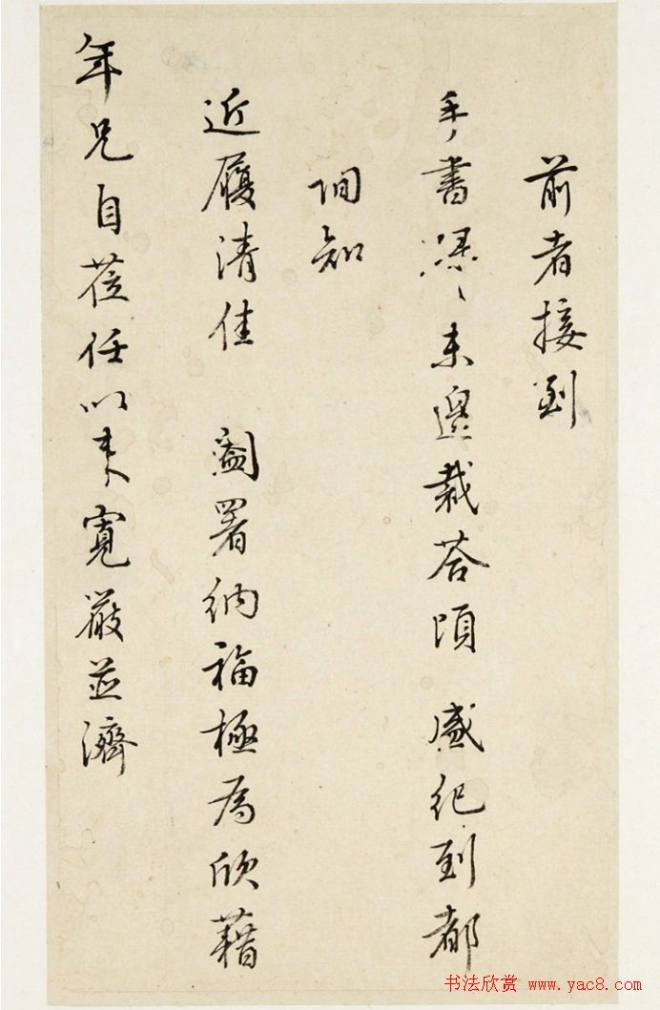 前者接到
手書未遑裁荅頃 盛紀到都
詢知
近履清佳 闔署納福極為欣藉
年兄自莅任以來寬嚴並濟
书法欣赏 www.yac8.com